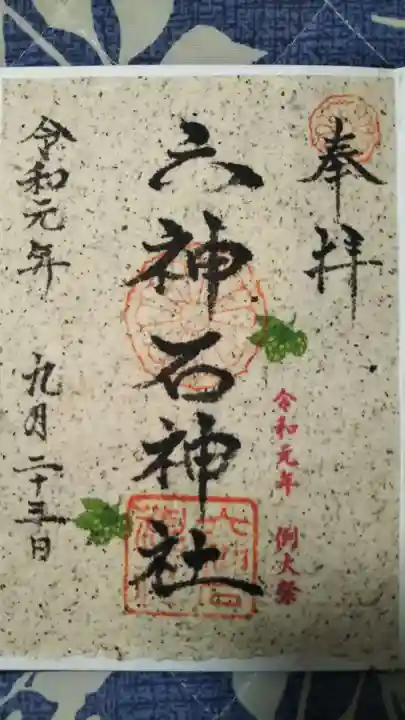 奉拝
令和元年 例大祭
六神石神社
令和元年 九月二十三日